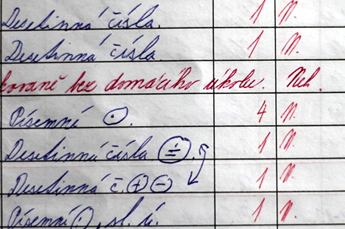 Desetinná čísla. 1 N.
Desetinná čísla 1 N.
bez domácího úkolu. Neh.
Písemné ⊙. 4 N.
Desetinná čísla ÷ 1 N.
Desetinná č. + − 1 N.
Písemné ⊙, sl. ú. 1 N.